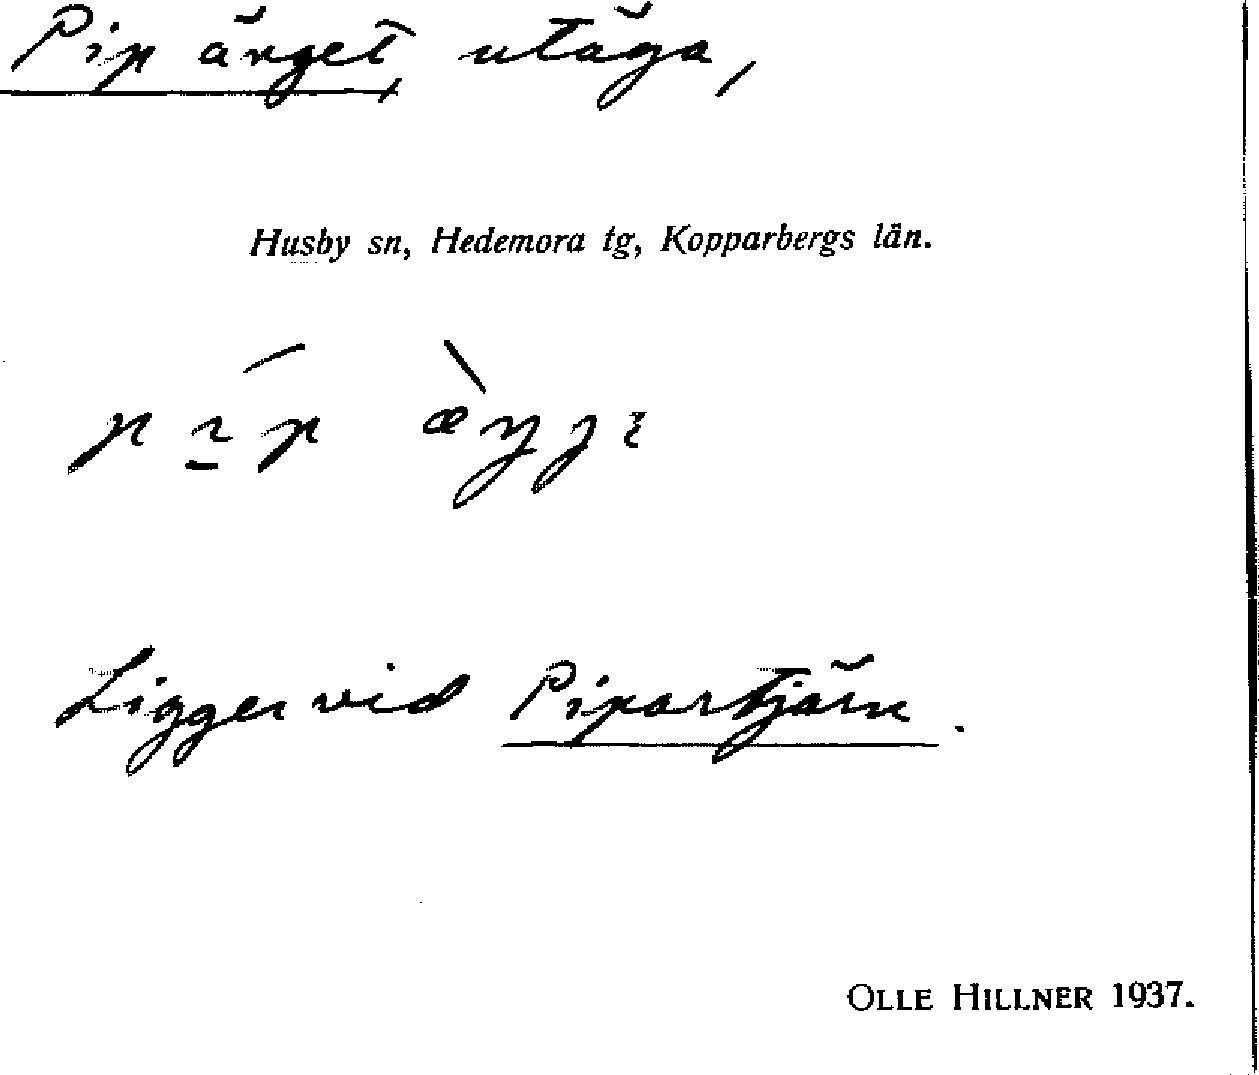 Pipänget, utäga,
Husby sn, Hedemora tg, Kopparbergs län.
Ligger vid Pipartjärn.
OLLE HILLNER 1937.